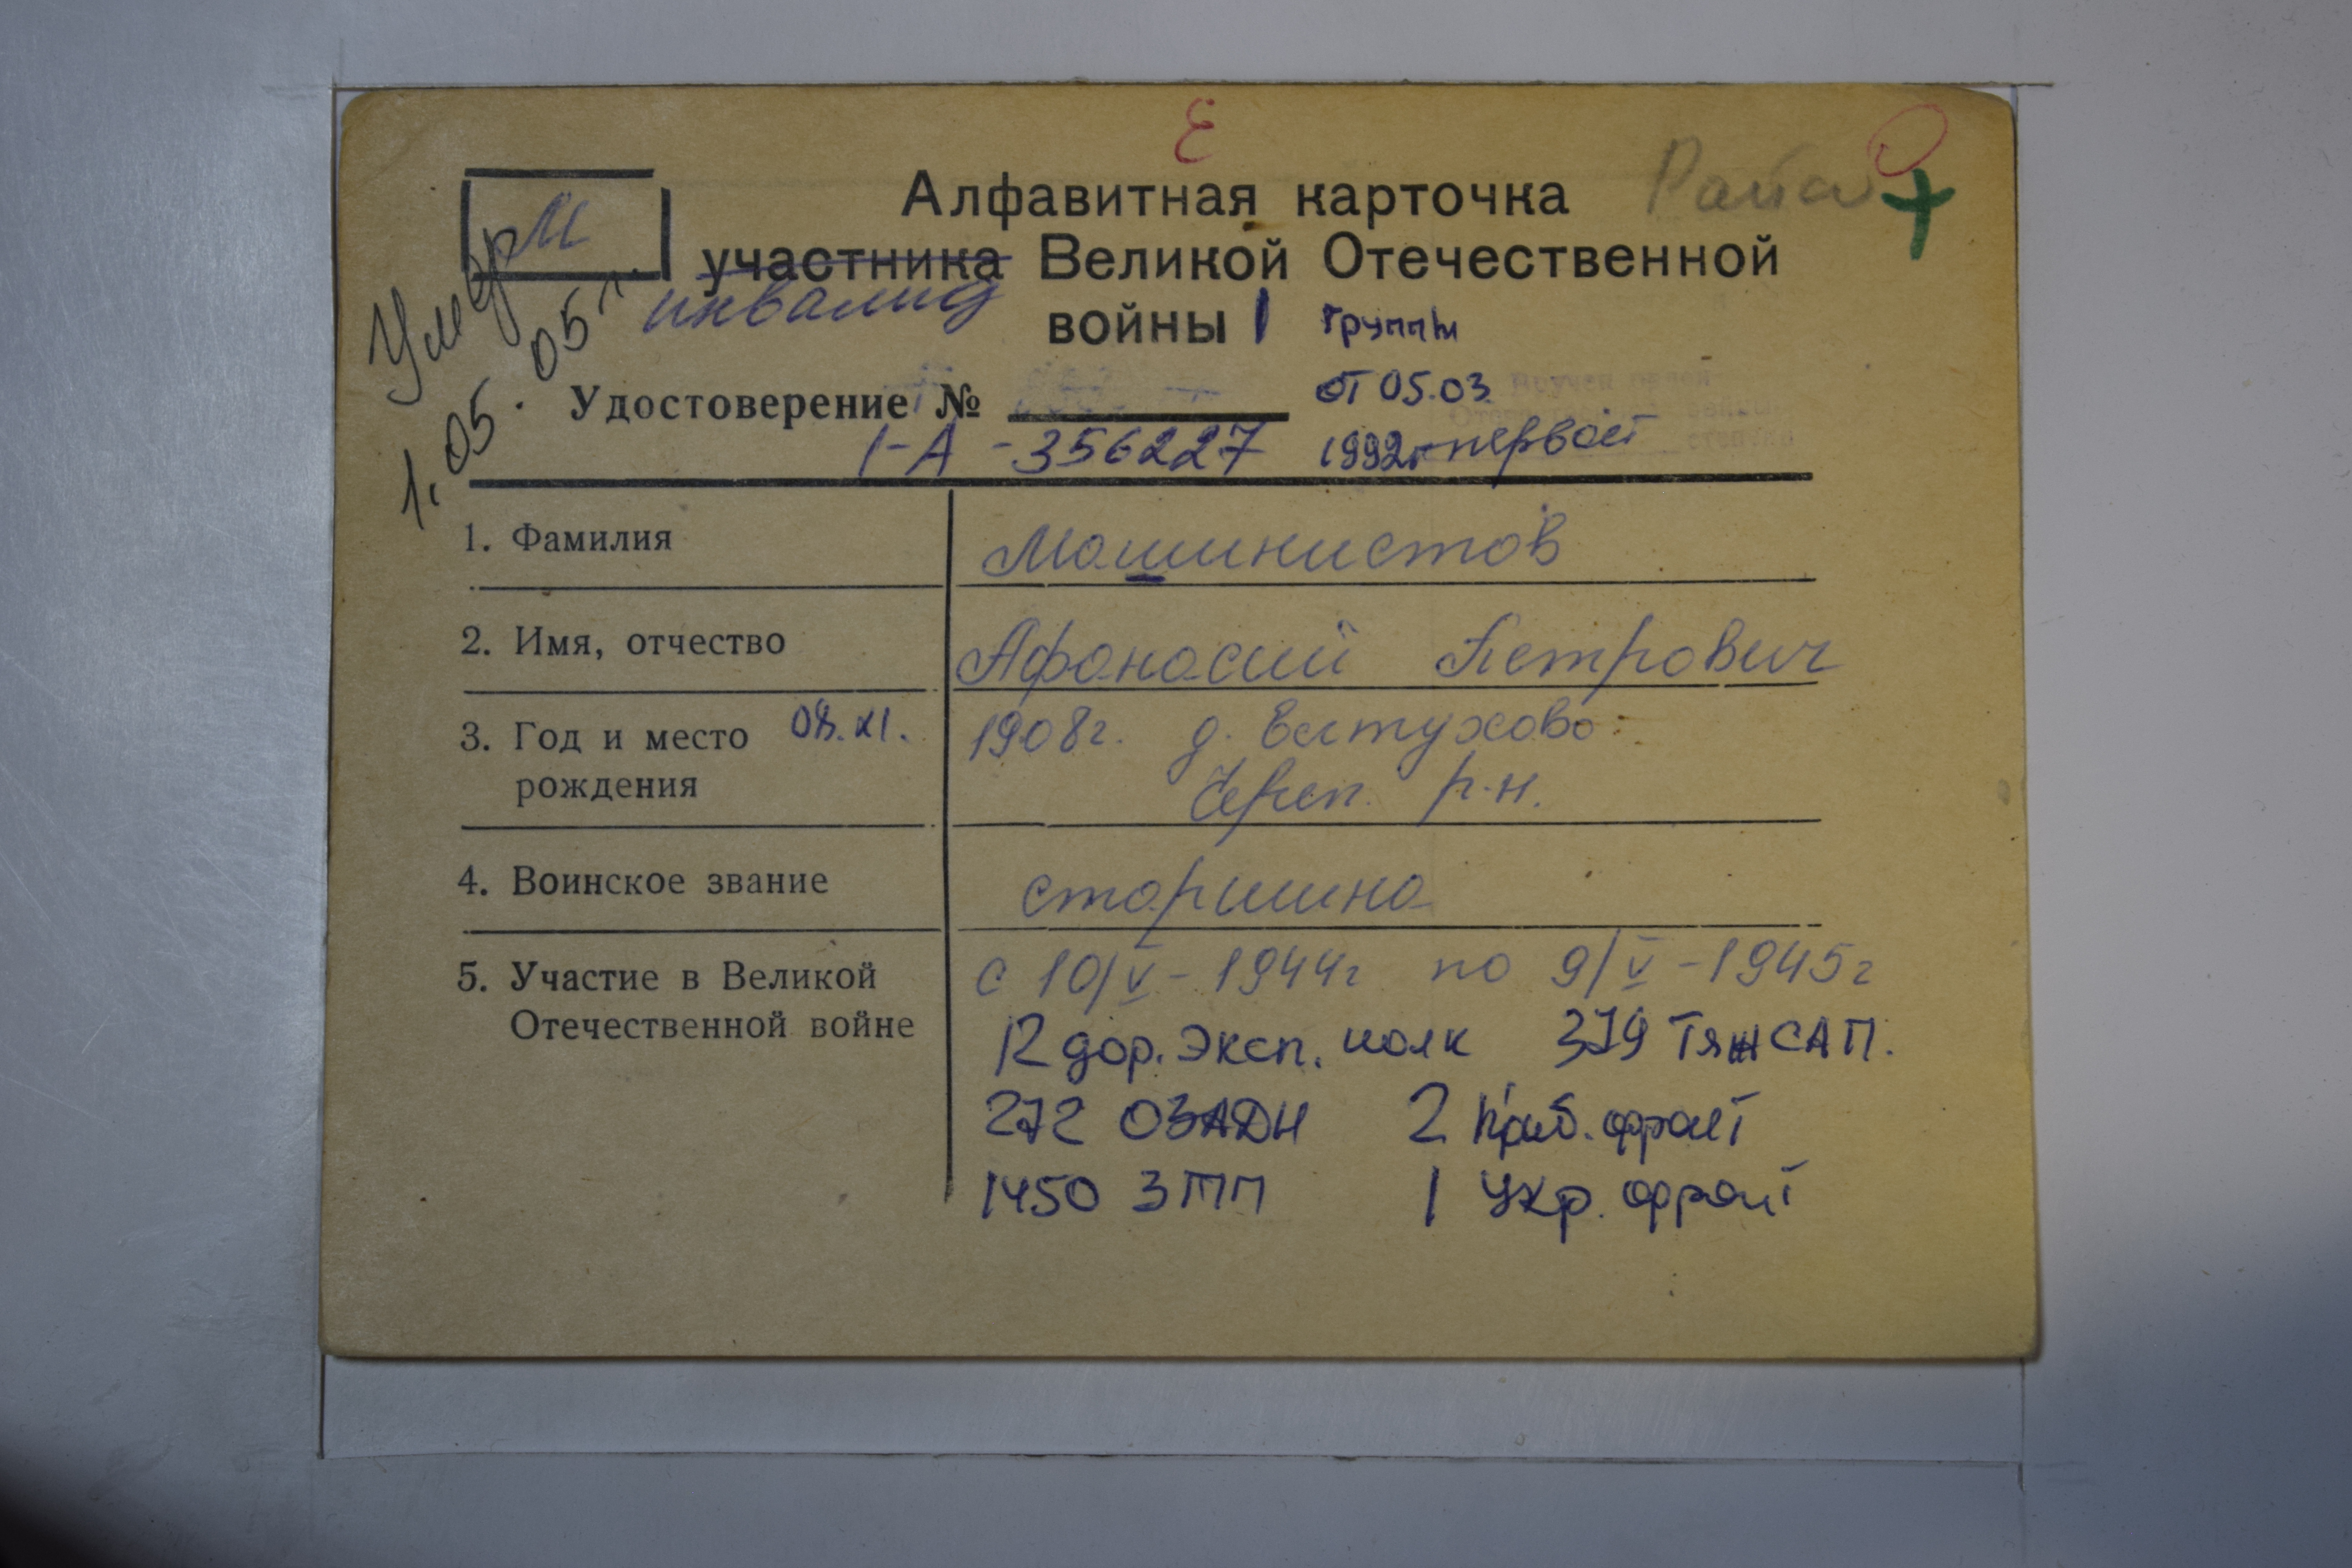 Е
Алфавитная карточка
М
участника Великой Отечественной
инвалид
войны I группы
Умер
1.05.05г.
Удостоверение № от 05.03.
I-А - 356227 1992г первой
1. Фамилия Машинистов
2. Имя, отчество Афанасий Петрович
3. Год и место 08.XI. 1908г. д. Елтухово
рождения Череп. р-н.
4. Воинское звание старшина
5. Участие в Великой с 10/V - 1944г по 9/V - 1945г
Отечественной войне 12 дор. эксп. полк 379 ТяжСАП.
272 ОЗАДН 2 Приб. фронт
1450 ЗТП 1 Укр. фронт